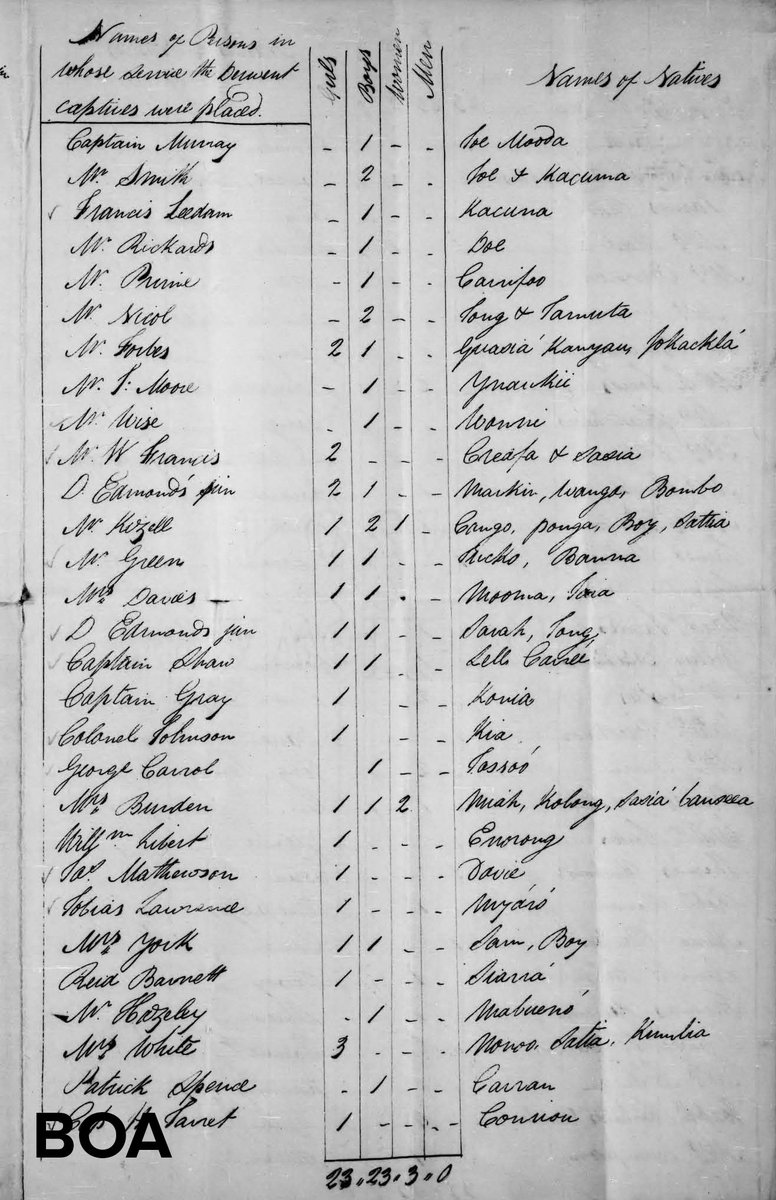 Names of Persons in
whose service the Derwent
captives were placed.
Girls Boys Women Men
Names of Natives
Captain Murray - 1 - - Joe Mooda
Mr Smith - 2 - - Joe & Kacuma
Francis Leedam - 1 - - Kacuna
Mr Rickards - 1 - - Doe
Mr Pirrie - 1 - - Carrifoo
Mr Nicol - 2 - - Tong & Tamuta
Mr Forbes 2 1 - - Guasiá Kanyau, JoKacklá
Mr T: Moore - 1 - -
Mr Wise - 1 - - Wonni
Mr W Francis 2 - - - Creafa & Sasia
D. Edmonds jun 2 1 - - Markin, Wango, Bombo
Mr Kizell 1 2 1 - Congo, ponga, Boy, Sattia
Mr Green 1 1 - - Banna
Mrs Davies 1 1 - - Mooma,
D Edmonds jun 1 1 - - Sarah, Tong
Captain Shaw 1 1 - - Lell Carré
Captain Gray 1 - - Konia
Colonel Johnson 1 - - Kia
George Carrol 1 - - Tassoó
Mrs Burden 1 1 2 Miah, Kolong, Sasiá
Willm Libert 1 - - Enorong
Jas Mathewson 1 - - - Davie
Tobias Lawrence 1 - - - Myáró
Mrs York 1 1 - - Sam, Boy
Reid Barnett 1 - - - Siarrá
Mr Hizeley - 1 - - Mabuenó
Mrs White 3 - - - Satia, Kumbia
Patrick Spence - 1 - - Carran
H. Jarret 1 - - - - Connou
23 " 23 " 3 " 0
BOA